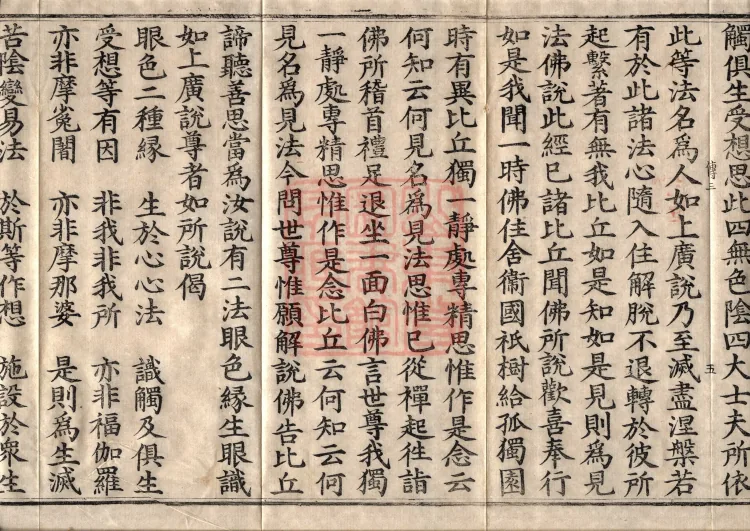 觸俱生受想思此四無色陰四大士夫所依
此等法名爲人如上廣說乃至滅盡涅槃若
有於此諸法心隨入住解脫不退轉於彼所
起繫著有無我比丘如是知如是見則爲見
法佛說此經已諸比丘聞佛所說歡喜奉行
如是我聞一時佛住舍衞國祇樹給孤獨園
時有異比丘獨一靜處專精思惟作是念云
何知云何見名爲見法思惟已從禪起往詣
佛所稽首禮足退坐一面白佛言世尊我獨
一靜處專精思惟作是念比丘云何知云何
見名爲見法今問世尊惟願解說佛告比丘
諦聽善思當爲汝說有二法眼色緣生眼識
如上廣說尊者如所說偈
眼色二種緣　生於心心法　識觸及俱生
受想等有因　非我非我所　亦非福伽羅
亦非摩㝹闍　亦非摩那婆　是則爲生滅
苦陰變易法　於斯等作想　施設於衆生
傳三
五